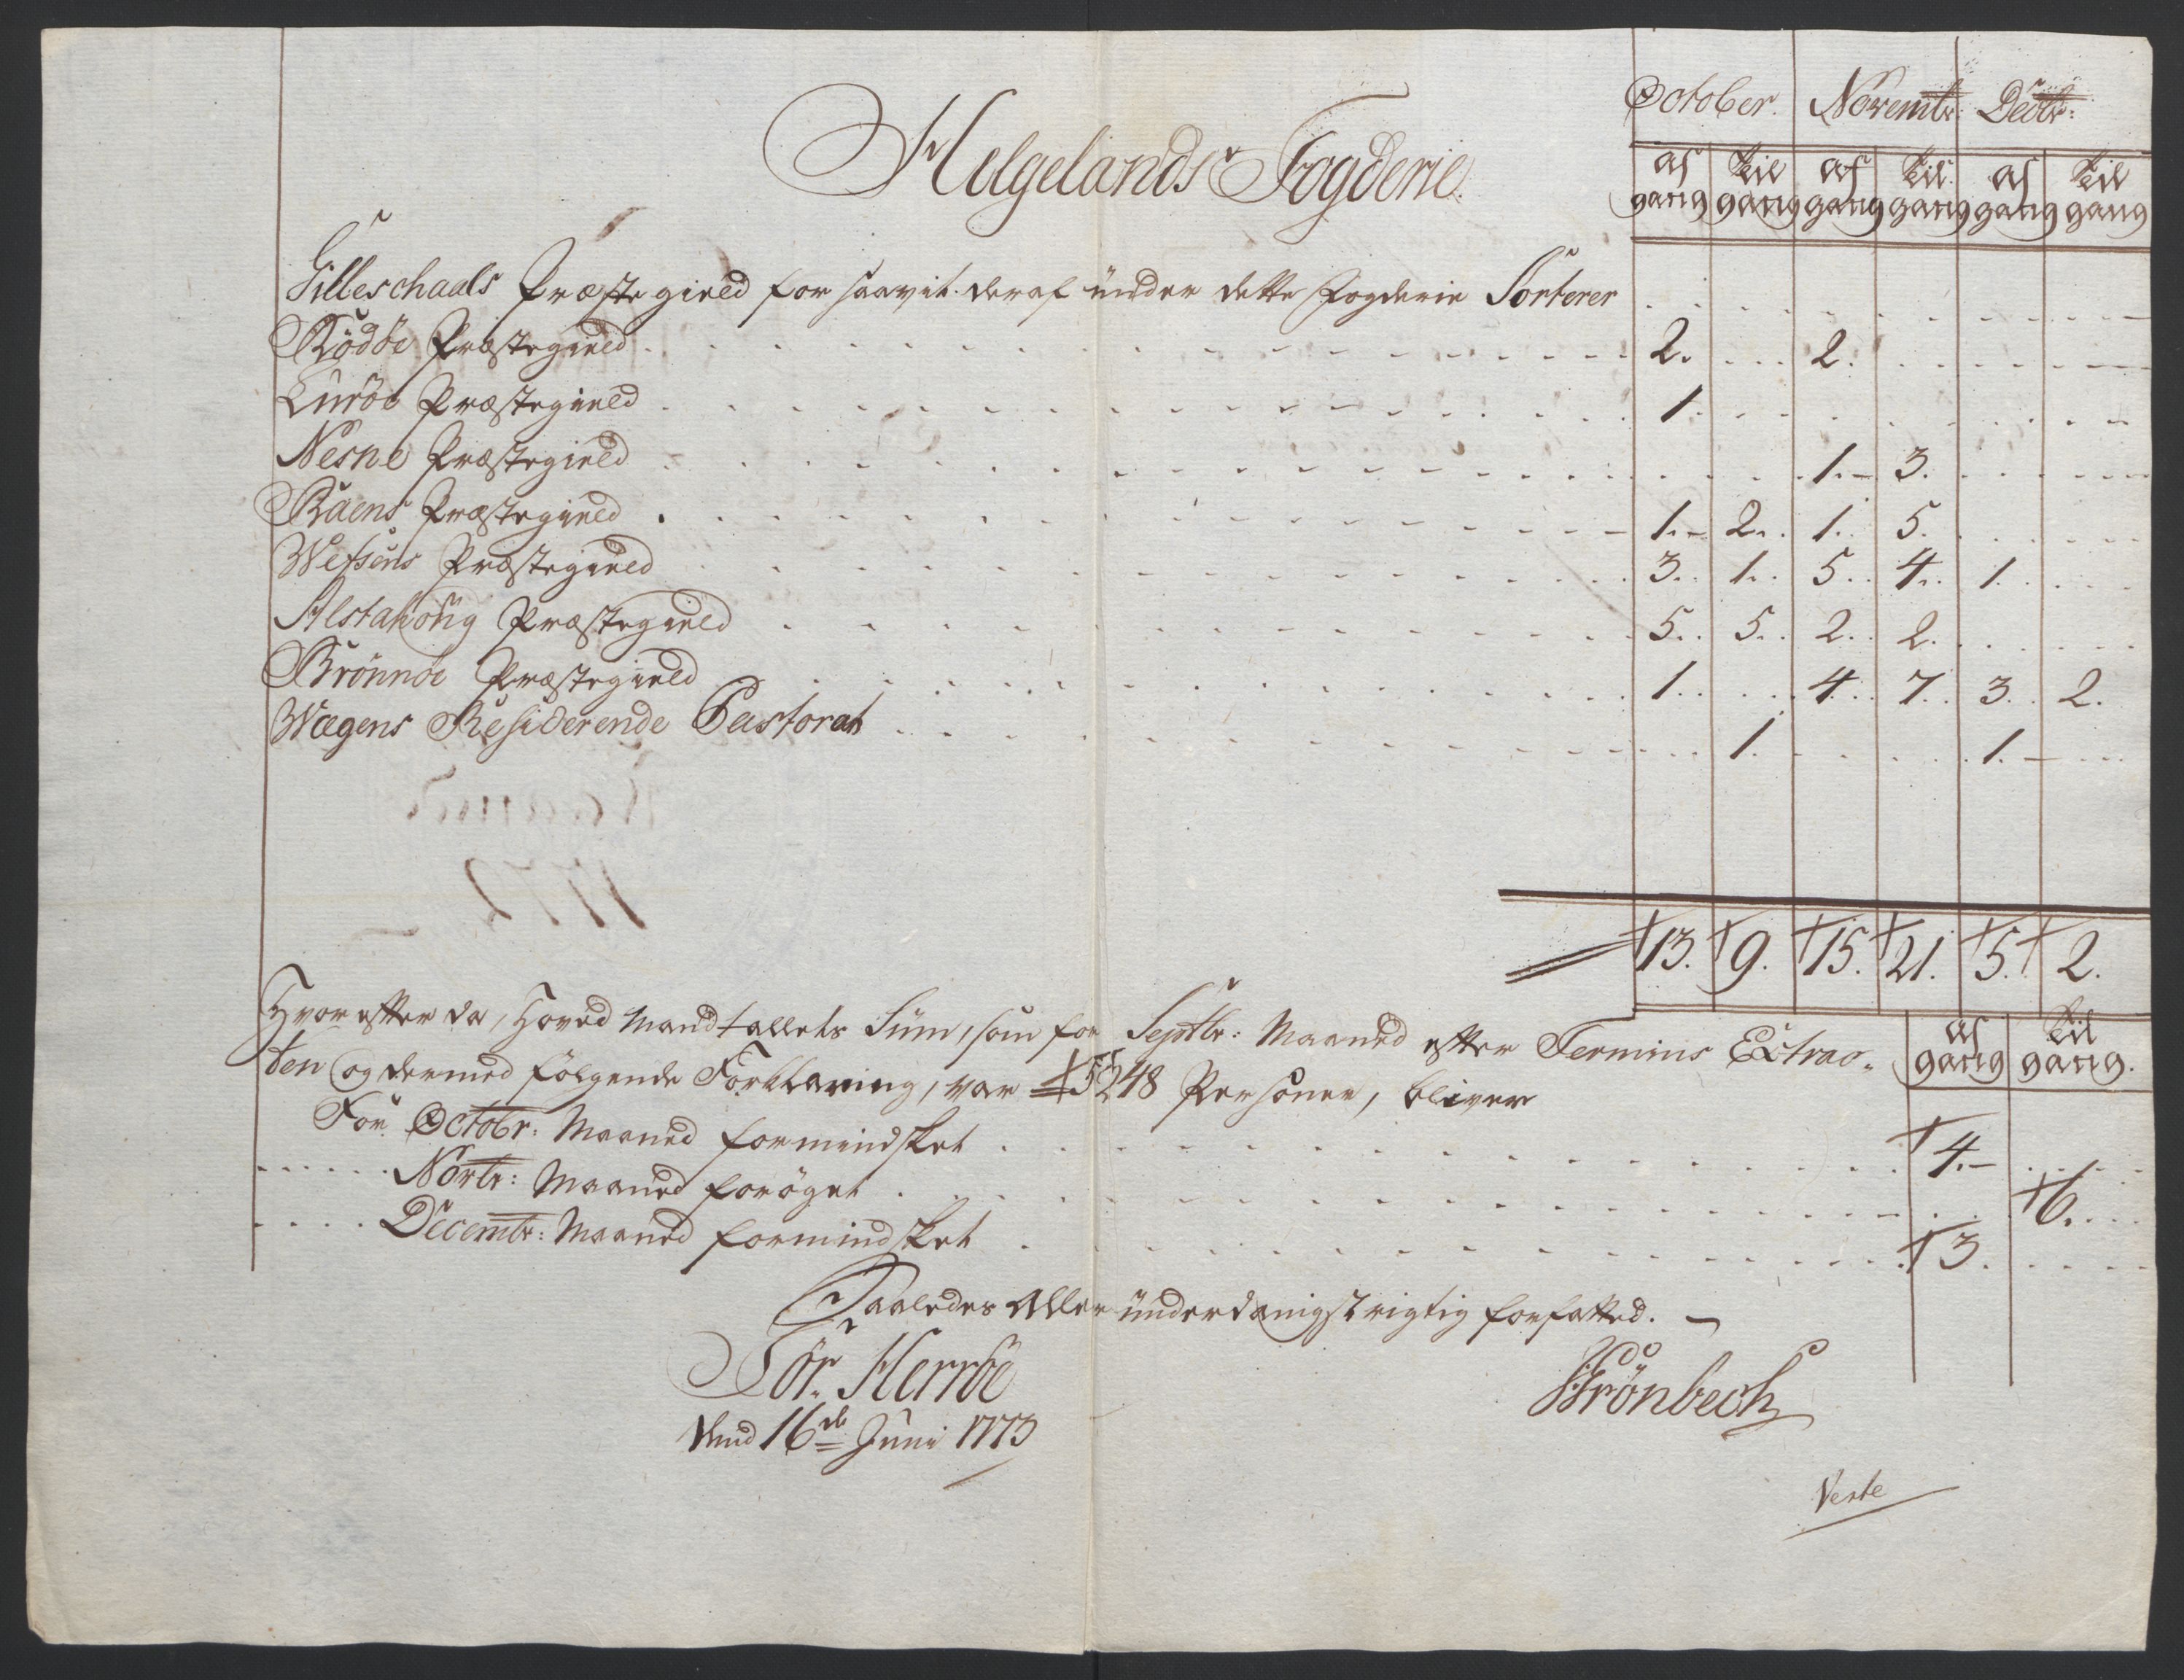 October. Novembr: Decbr:
Helgelands Fogderie.
af gang til gang af gang til gang af gang til gang
Gilleschaals Præstegield for saavit deraf under dette Fogderie Sorterer
Rödöe Præstegield 2. 2.
Luröe Præstegield 1.
Nesne Præstegield 1. 3.
Raens Præstegield 1. 2. 1. 5.
Wefsens Præstegield 3. 1. 5. 4. 1.
Alstahoug Præstegield 5. 5. 2. 2.
Brönnöe Præstegield 1. 4. 7. 3. 2.
Wægens Residerende Pastorat 1. 1.
13. 9. 15. 21. 5. 2.
Hvorefter da, Hoved Mandtallets Sum, som for Septbr: Maaned efter Termins Extrac-
af gang til gang.
ten og dermed følgende Forklaring, var 5248 Personer, bliver
For Octobr: Maaned formindsket 4.
Novbr: Maaned forøget 6.
Decembr: Maaned formindsket 3.
Saaledes Allerunderdanigst rigtig forfatted.
Sör Herröe
dend 16de Juni 1773
Grönbech
Verte